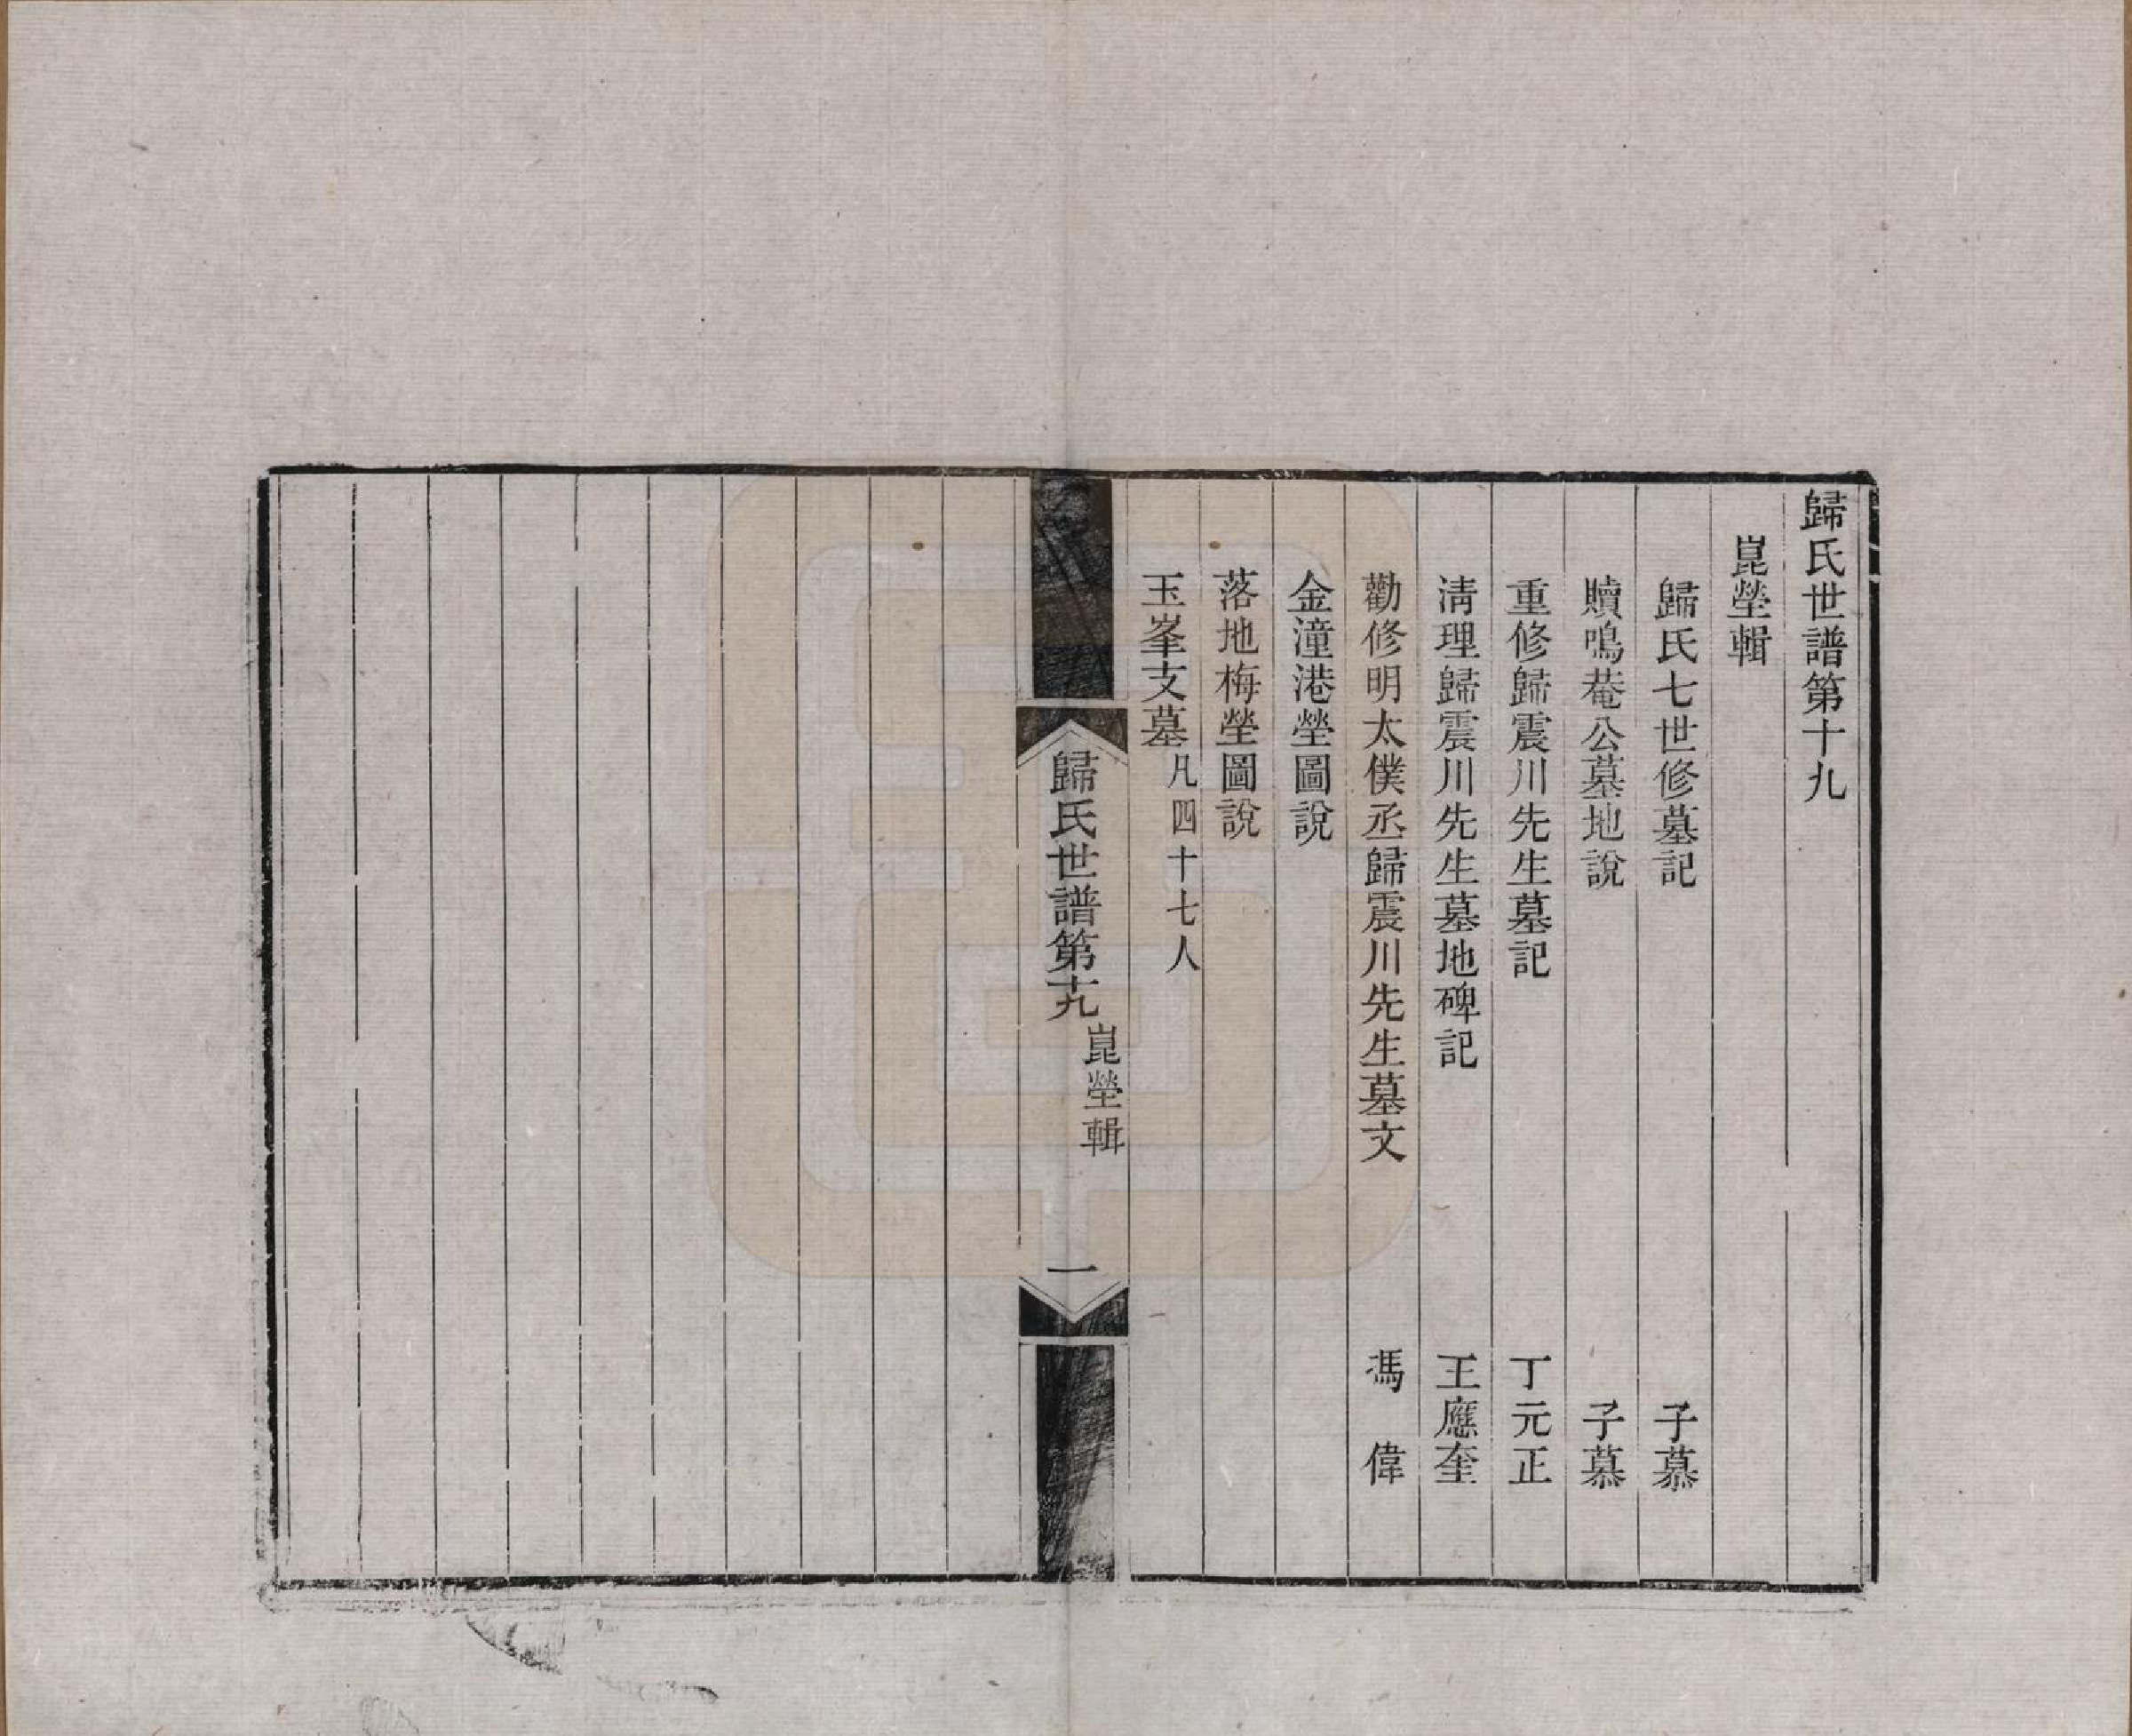 歸氏世譜第十九
崑塋輯
歸氏七世修墓記　子慕
贖鳴菴公墓地說　子慕
重修歸震川先生墓記　丁元正
淸理歸震川先生墓地碑記　王應奎
勸修明太僕丞歸震川先生墓文　馮偉
金潼港塋圖說
落地梅塋圖說
玉峯支墓凡四十七人
歸氏世譜第十九　崑塋輯　一